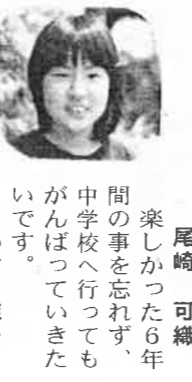 尾崎　可織
楽しかった6年
間の事を忘れず、
中学校へ行っても
がんばっていきた
いです。